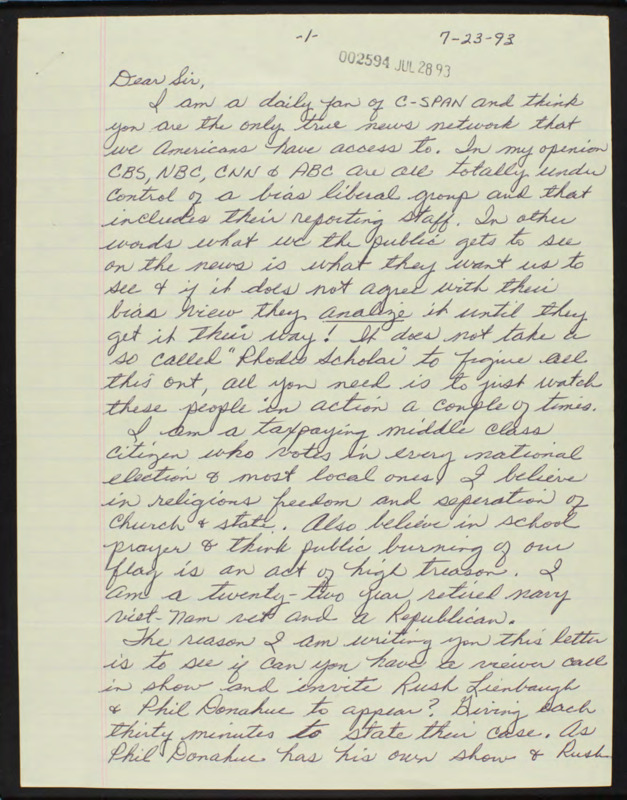 -1-
7-23-93
002594 JUL 28 93
Dear Sir,
I am a daily fan of C-SPAN and think
you are the only true news network that
we Americans have access to. In my opinion
CBS, NBC, CNN & ABC are all totally under
control of a bias liberal group and that
includes their reporting staff. In other
words what we the public gets to see
on the news is what they want us to
see & if it does not agree with their
bias view they analize it until they
get it their way! It does not take a
so called "Rhodes Scholar" to figure all
this out, all you need is to just watch
these people in action a couple of times.
I am a taxpaying middle class
citizen who votes in every national
election & most local ones. I believe
in religious freedom and seperation of
church & state. Also believe in school
prayer & think public burning of our
flag is an act of high treason. I
am a twenty-two year retired navy
viet-nam vet and a Republican.
The reason I am writing you this letter
is to see if can you have a viewer call
in show and invite Rush Lienbaugh
& Phil Donahue to appear? Giving each
thirty minutes to state their case. As
Phil Donahue has his own show & Rush